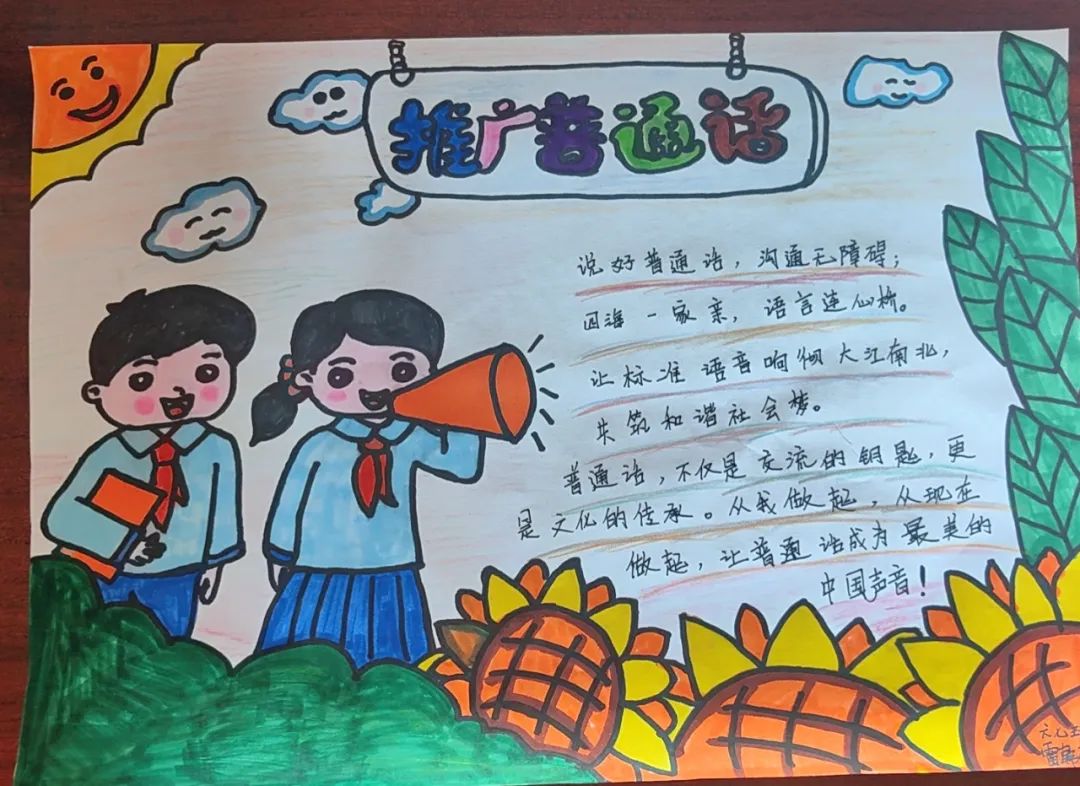 推广普通话
说好普通话，沟通无障碍；
四海一家亲，语言连心桥。
让标准语音响彻大江南北，
共筑和谐社会梦。
普通话，不仅是交流的钥匙，更
是文化的传承。从我做起，从现在
做起，让普通话成为最美的
中国声音！